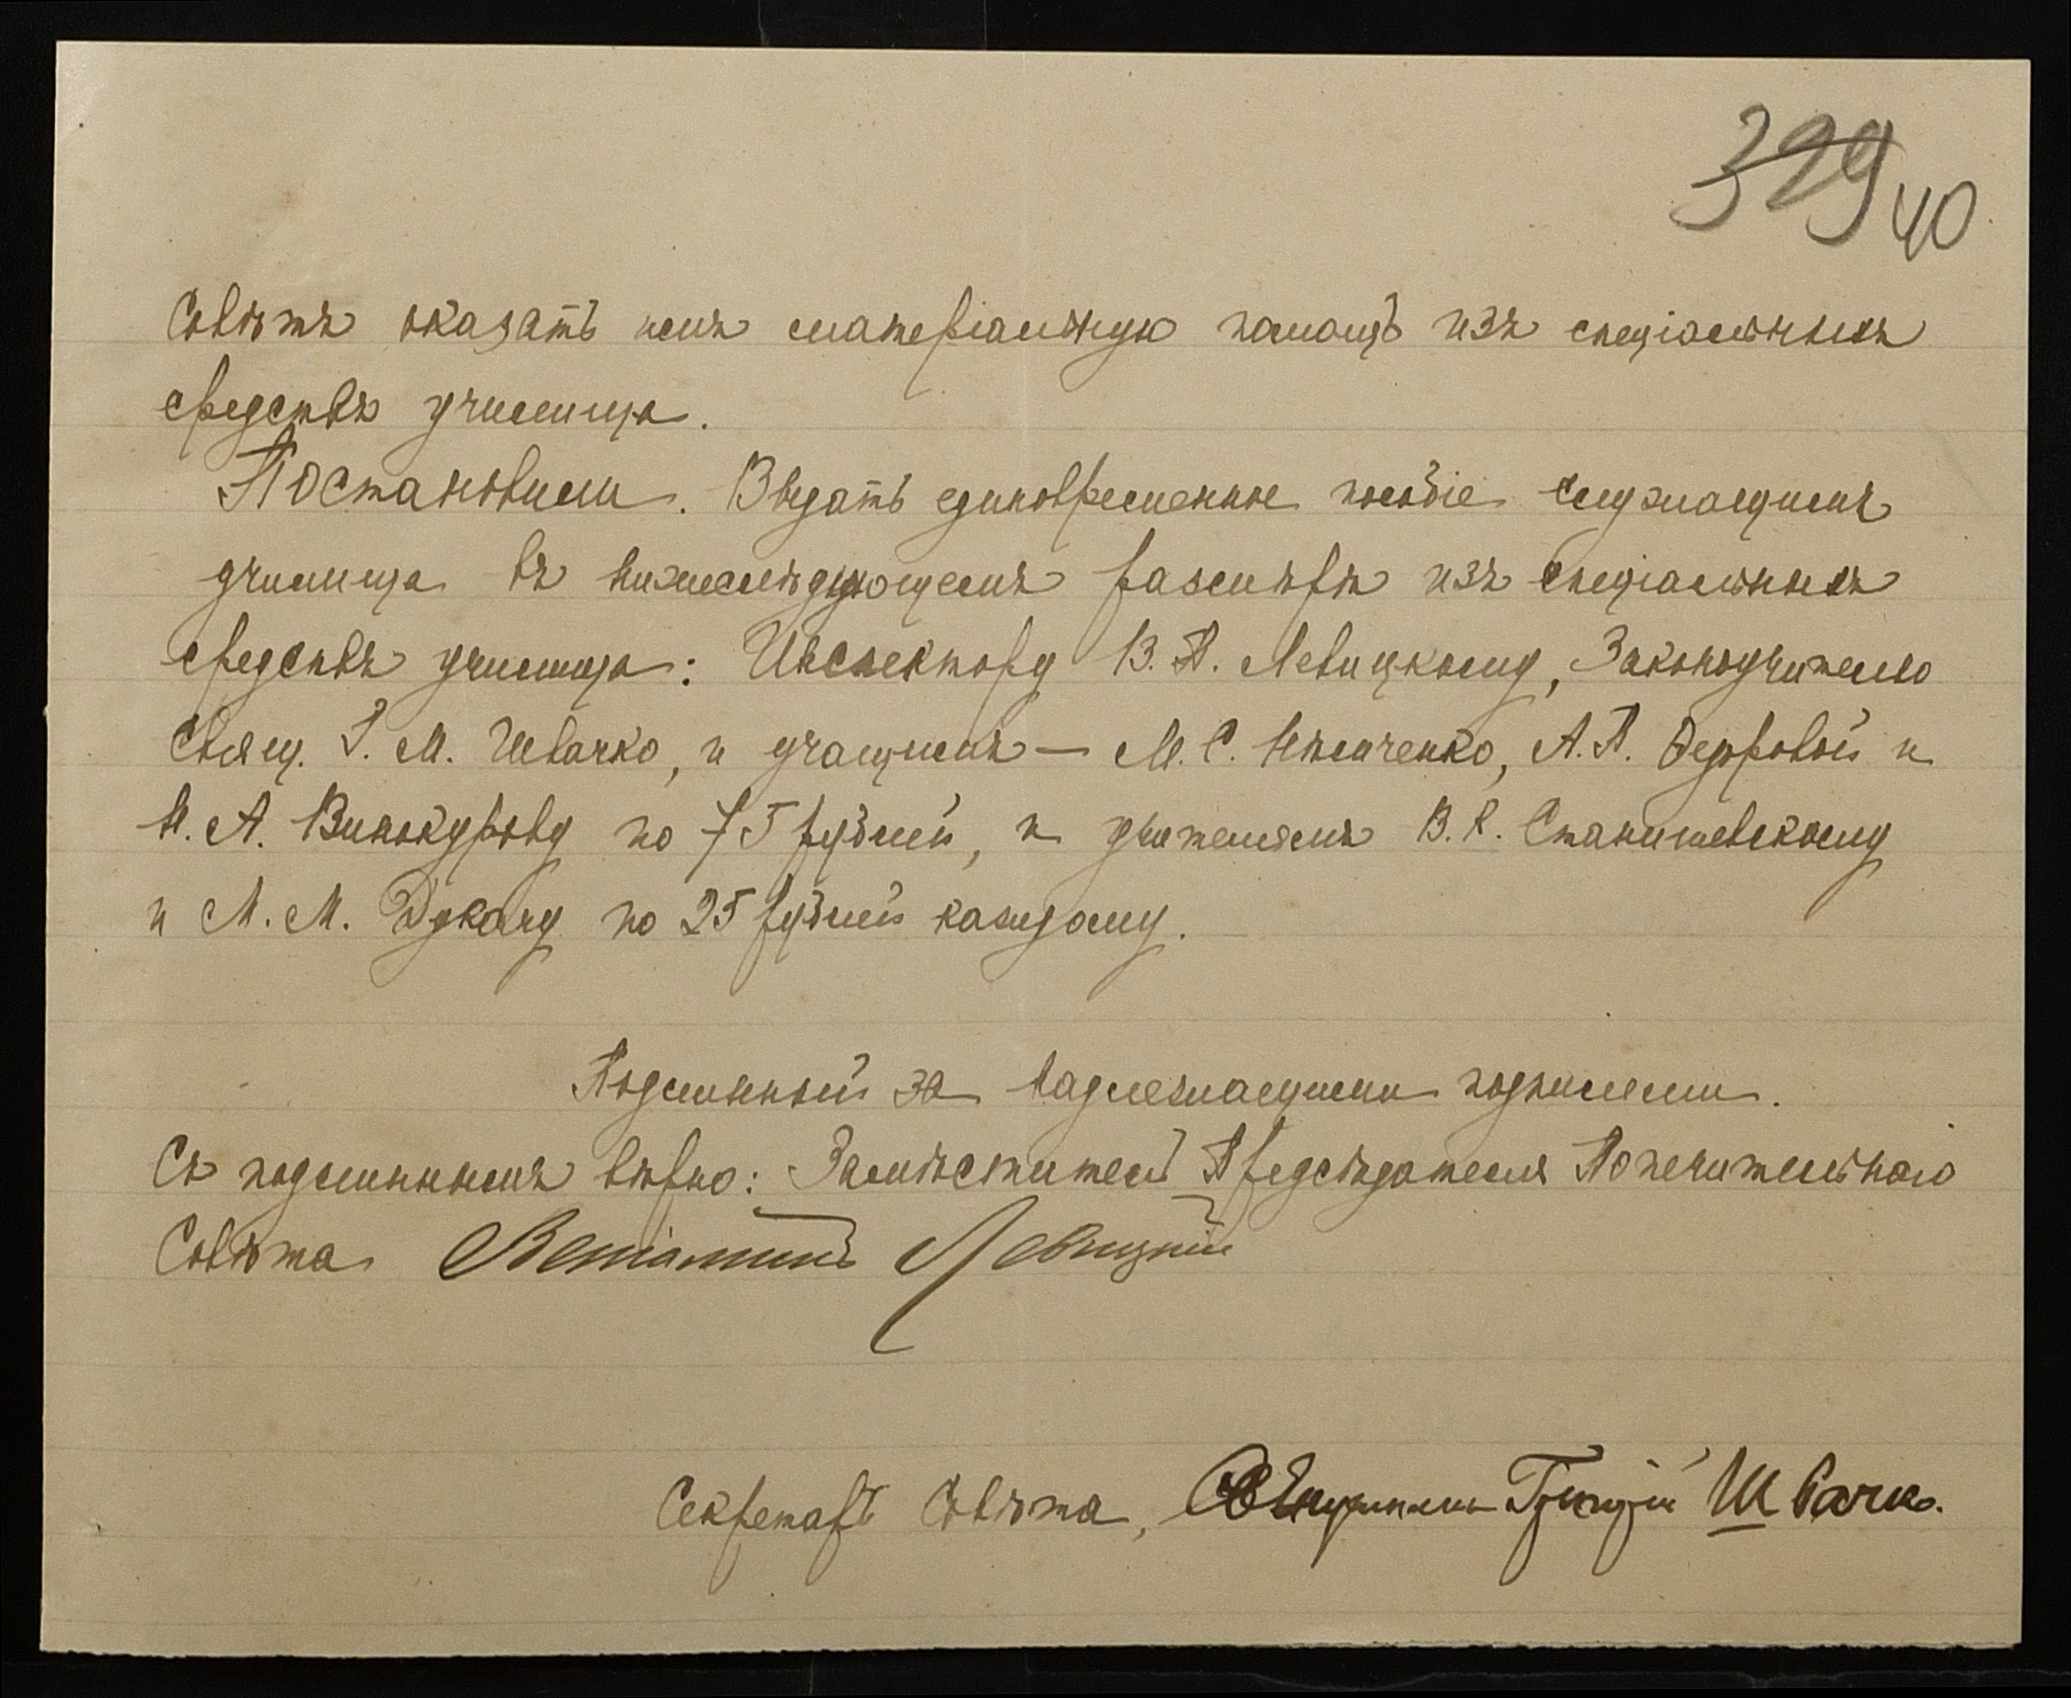 329 40
Совѣтъ оказать имъ матеріальную помощь изъ спеціальныхъ
средствъ училища.
Постановили. Выдать единовременное пособіе служащимъ
училища въ нижеслѣдующемъ размѣрѣ изъ спеціальныхъ
средствъ училища: Инспектору В. П. Левицкому, Законоучителю
Свящ. Г. М. Швачко, и учащимъ — М. С. Ильченко, А. П. Федоровой и
Н. А. Винокурову по 75 рублей, и учителямъ В. К. Станишевскому
и М. М. Дукачу по 25 рублей каждому.
Подлинный за надлежащими подписями.
Съ подлиннымъ вѣрно: Замѣститель Предсѣдателя Попечительнаго
Совѣта Веніаминъ Левицкій
Секретарь Совѣта, Священникъ Григорій Швачко.